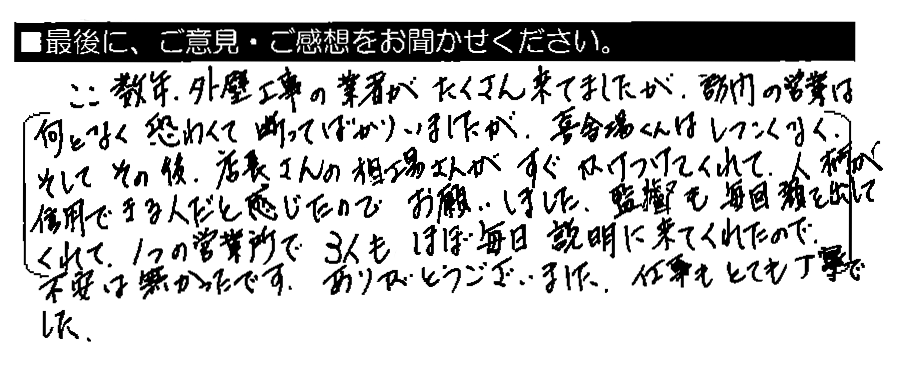 ■最後に、ご意見・ご感想をお聞かせください。
ここ数年、外壁工事の業者がたくさん来てましたが、訪問の営業は
何となく恐わくて断ってばかりいましたが、喜合場くんはしつこくなく、
そしてその後、店長さんの相場さんがすぐかけつけてくれて、人柄が
信用できる人だと感じたのでお願いしました。監督も毎回顔を出して
くれて、1つの営業所で3人もほぼ毎日説明に来てくれたので、
不安は無かったです。ありがとうございました。仕事もとても丁寧で
した。